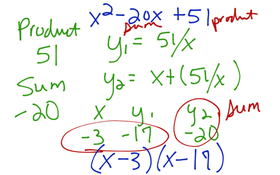 x²-20x +51 product
sum
Product
51
y₁ = 51/x
Sum
-20
y₂ = x+(51/x)
x y₁ y₂ Sum
-3 -17 -20
(x-3)(x-17)